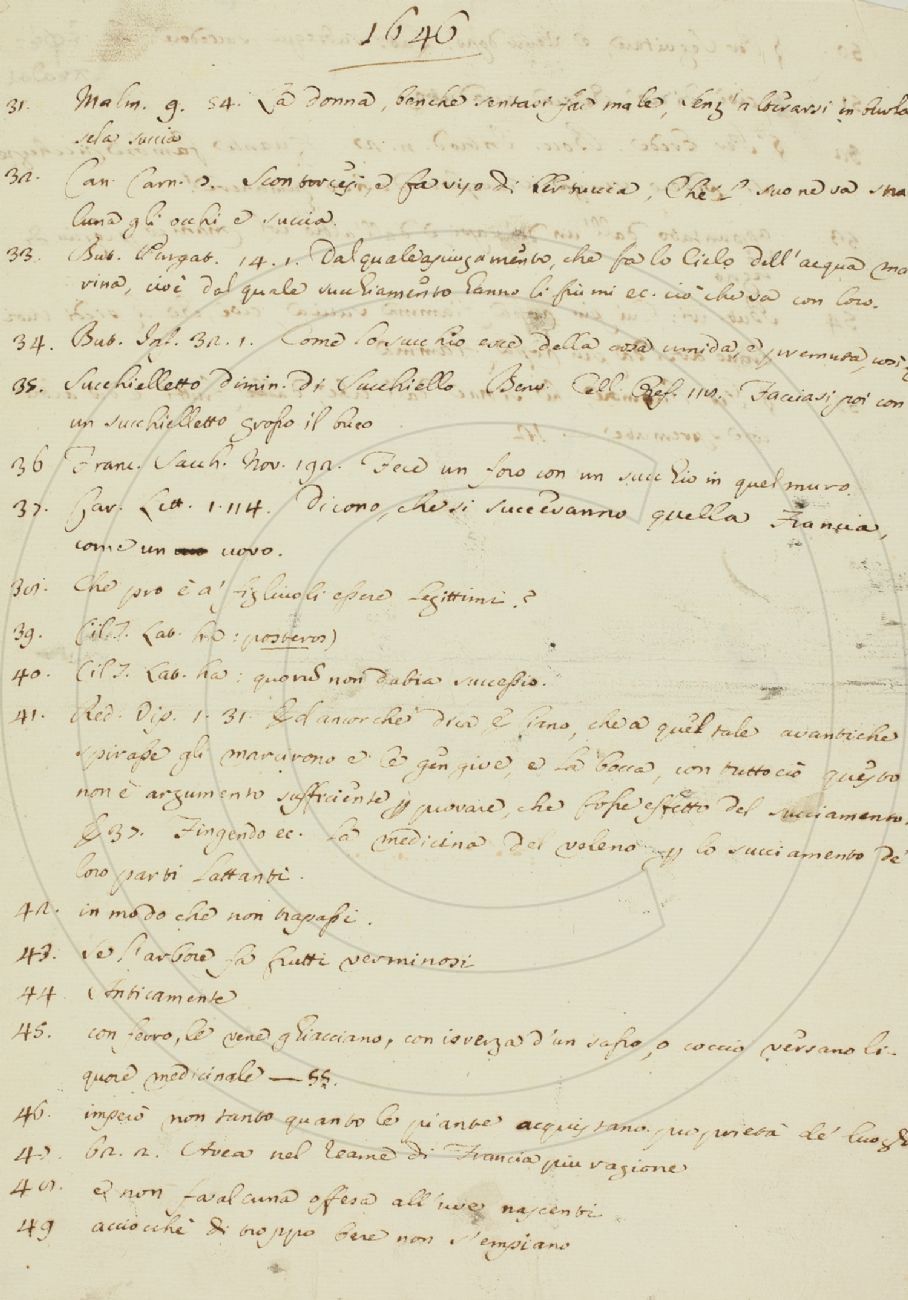 1646
31. Malm. 9. 54. La donna, benchè sentasi far male, senz' alterarsi in burla
se la succia
32. Can. Carn. 3. Scontorcesi, e fa viso di bertuccia, Che 'l suo ne va stra
luna gli occhi e succia.
33. But. Purgat. 14. 1. Dal quale asciugamento, che fa lo Cielo dell'acqua ma
rina, cioè dal quale succhiamento hanno li fiumi ec. ciò che va con loro.
34. But. Inf. 32. 1. Come lo succhio esce della cosa umida, e premuta, così
35. Succhielletto dimin. di Succhiello Benv. Cell. Oref. 118. Facciasi poi con
un succhielletto grosso il buco
36 Franc. Sacch. Nov. 192. Fece un foro con un succhio in quel muro.
37. Car. Lett. 1. 114. Dicono, che si succeranno quella Francia,
come un uovo.
38. Che pro è a' figliuoli essere legittimi?
39. Cil. J. Lat. ha: posteros)
40. Cil J. Lat. ha: quorum non dabia successio.
41. Red. Oip. 1. 31. Ed ancorchè dica Galeno, che a quel tale avantiche
spirasse gli marcirono e le gengive, e la bocca, con tutto ciò questo
non è argumento sufficiente per provare, che fosse effetto del succiamento.
E 37. Fingendo ec. la medicina del veleno per lo succiamento de'
loro parti lattanti.
42. in modo che non trapassi.
43. Se l'arbore fa frutti verminosi
44 Anticamente
45. con ferro, le vene ghiacciano, con ischeggia d'un sasso, o coccio versano li-
quore medicinale — SS.
46. imperò non tanto quanto le piante acquistano proprietà de' luoghi
47. 62. 2. Avea nel reame di Francia più ragione
48. e non fa alcuna offesa all'uve nascenti
49 acciocchè di troppo bere non s'empiano